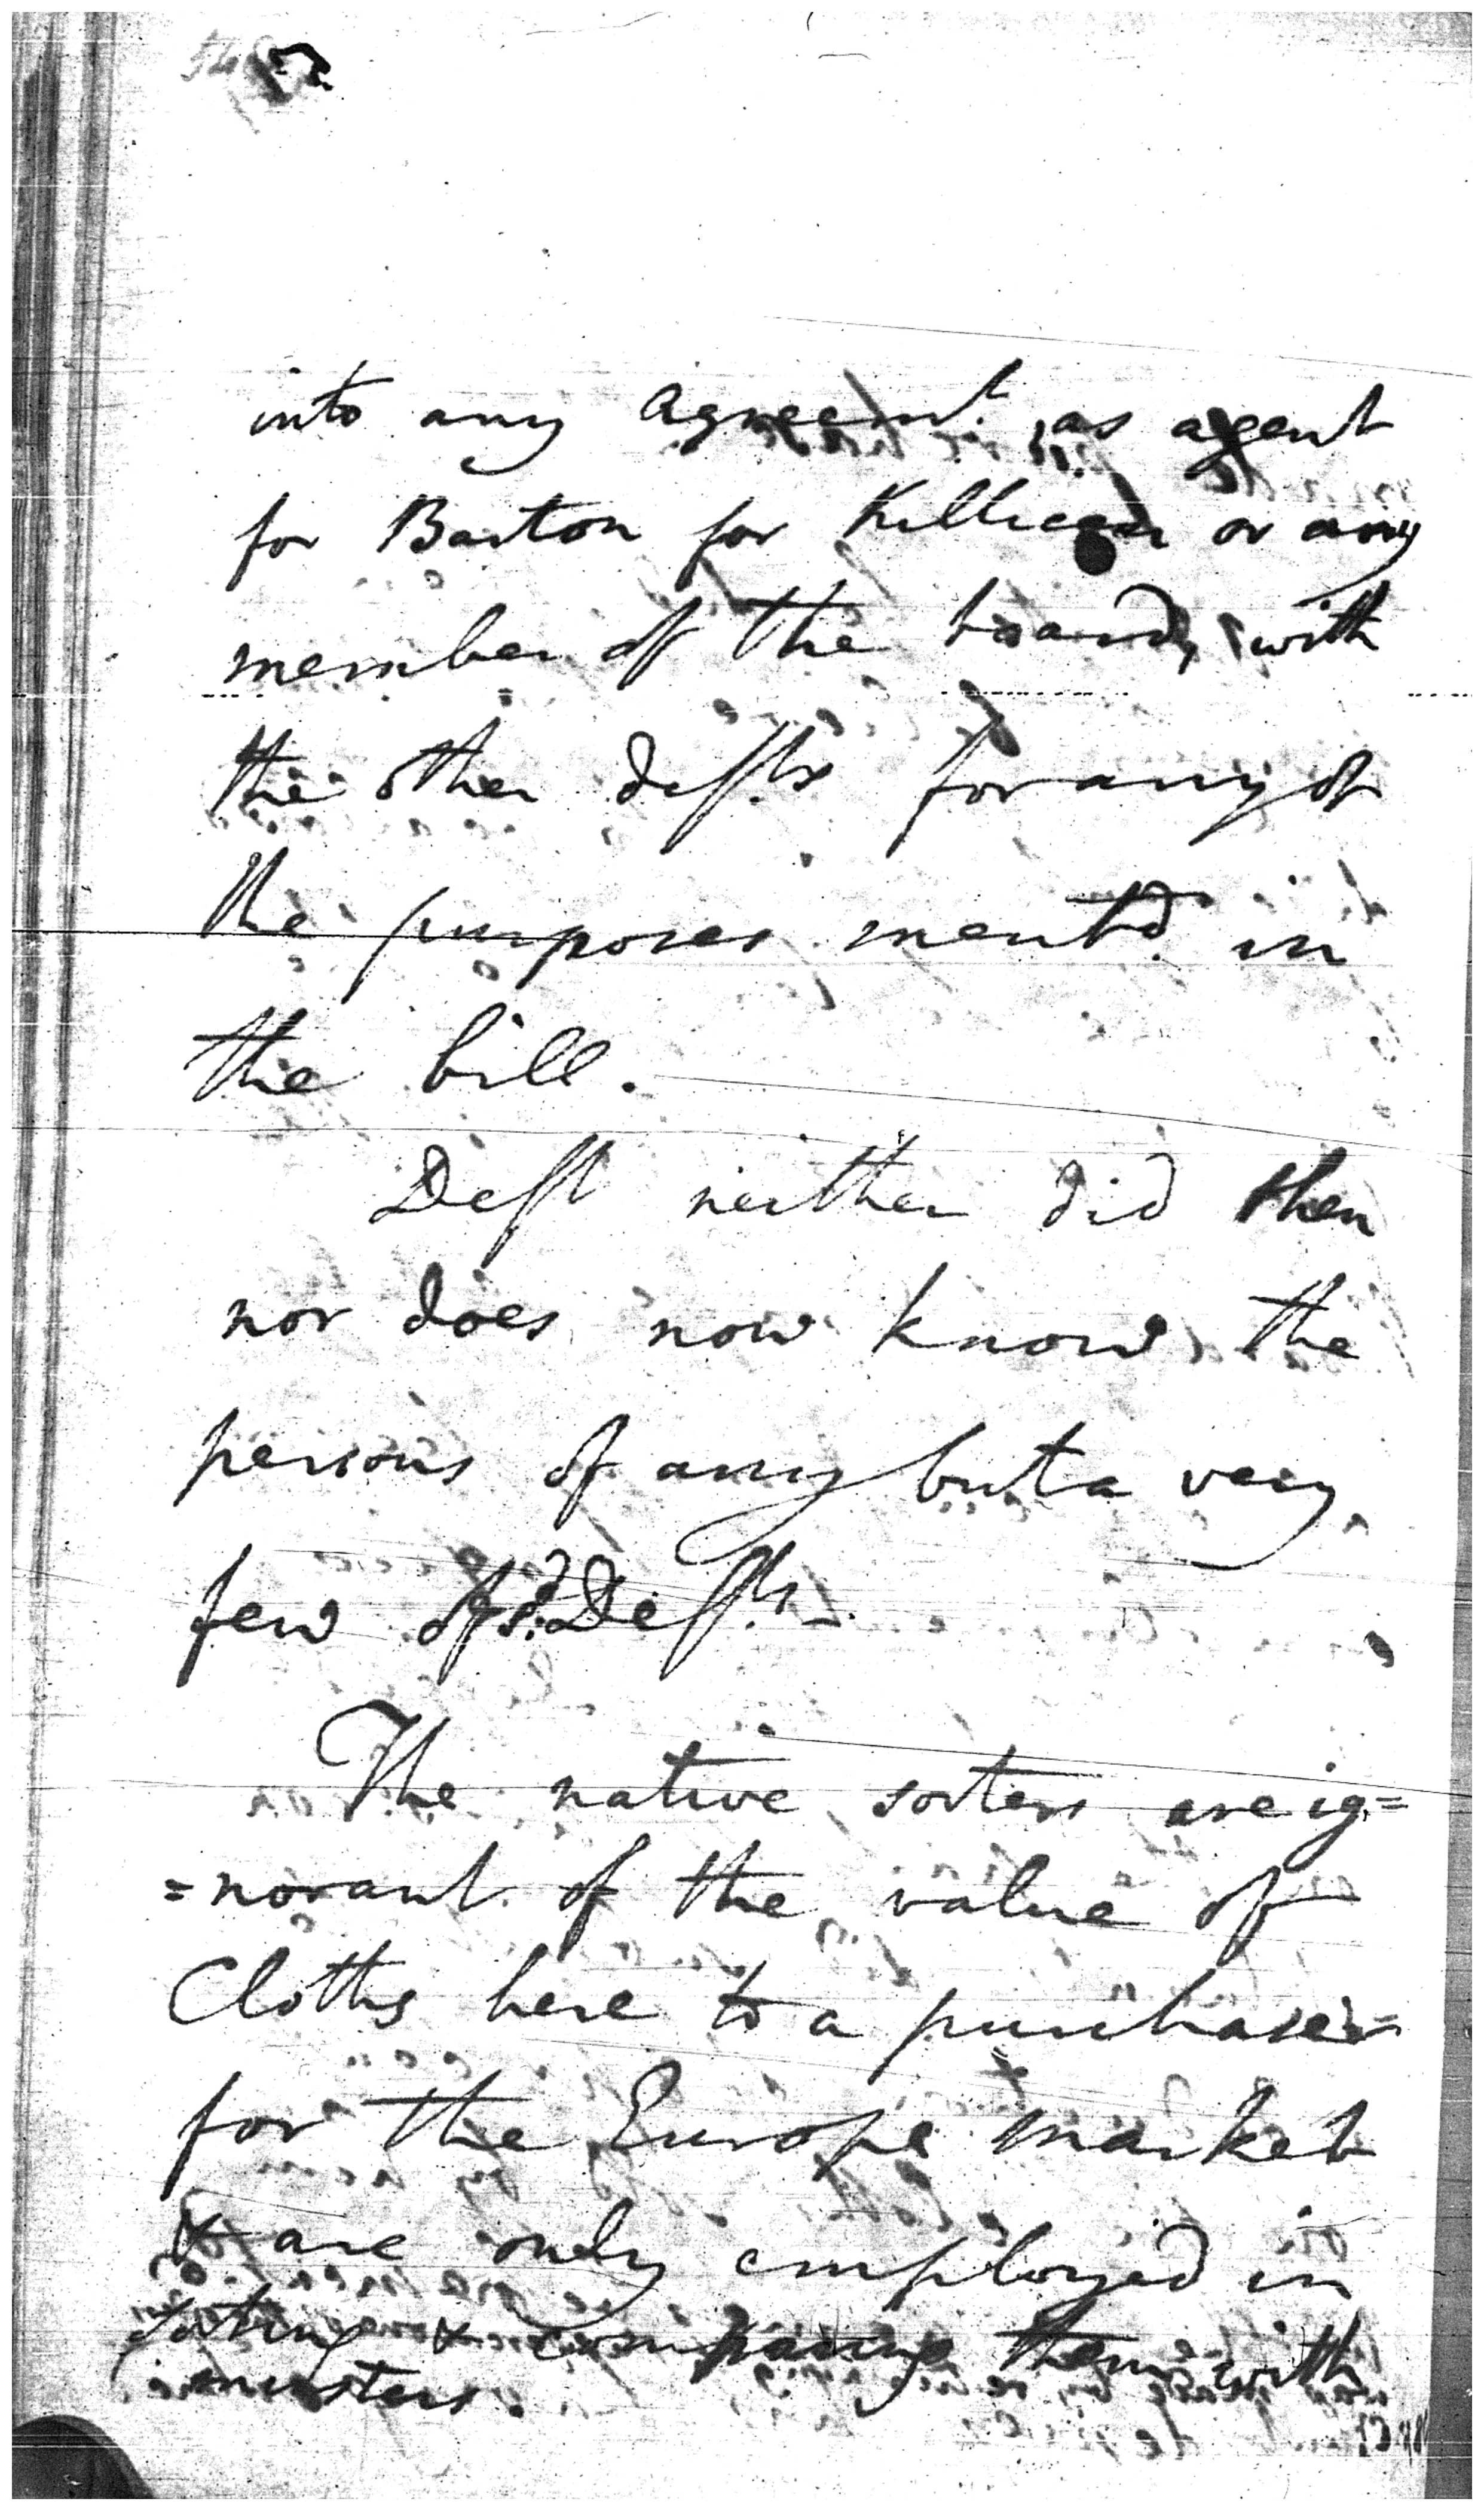 into any Agreemt. as agent
for Barton for Killican or any
member of the board, with
the other defts for any of
the purposes mentd. in
the bill.
Deft neither did then
nor does now know the
persons of any but a very
few of sd. Defts.
The native sorters are ig=
=norant of the value of
Cloths here to a purchaser
for the Europe market
& are only employed in
sorting & comparing them with
musters.